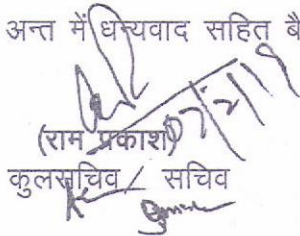 अन्त में धन्यवाद सहित बै
(राम प्रकाश)
कुलसचिव / सचिव